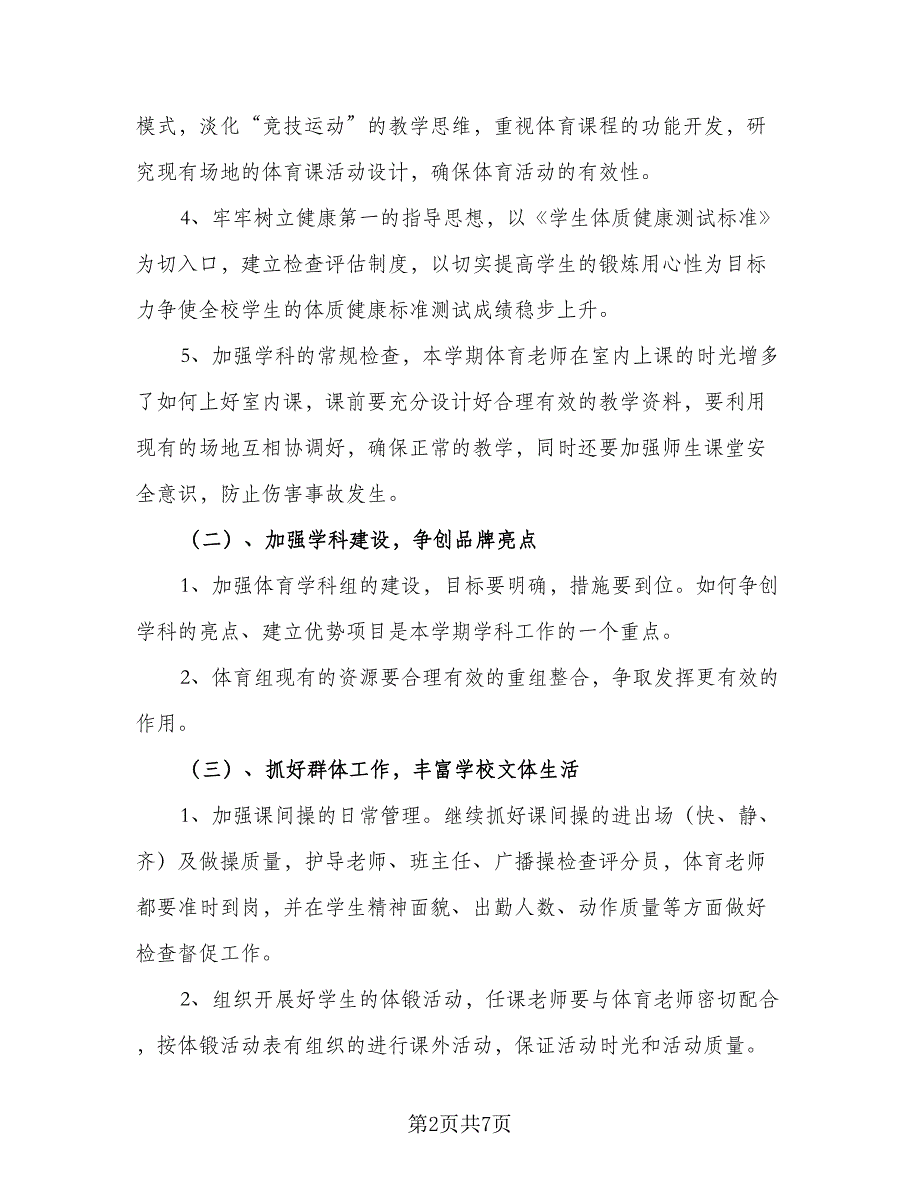 模式，淡化“竞技运动”的教学思维，重视体育课程的功能开发，研
究现有场地的体育课活动设计，确保体育活动的有效性。
4、牢牢树立健康第一的指导思想，以《学生体质健康测试标准》
为切入口，建立检查评估制度，以切实提高学生的锻炼用心性为目标
力争使全校学生的体质健康标准测试成绩稳步上升。
5、加强学科的常规检查，本学期体育老师在室内上课的时光增多
了如何上好室内课，课前要充分设计好合理有效的教学资料，要利用
现有的场地互相协调好，确保正常的教学，同时还要加强师生课堂安
全意识，防止伤害事故发生。
（二）、加强学科建设，争创品牌亮点
1、加强体育学科组的建设，目标要明确，措施要到位。如何争创
学科的亮点、建立优势项目是本学期学科工作的一个重点。
2、体育组现有的资源要合理有效的重组整合，争取发挥更有效的
作用。
（三）、抓好群体工作，丰富学校文体生活
1、加强课间操的日常管理。继续抓好课间操的进出场（快、静、
齐）及做操质量，护导老师、班主任、广播操检查评分员，体育老师
都要准时到岗，并在学生精神面貌、出勤人数、动作质量等方面做好
检查督促工作。
2、组织开展好学生的体锻活动，任课老师要与体育老师密切配合
，按体锻活动表有组织的进行课外活动，保证活动时光和活动质量。
第2页共7页